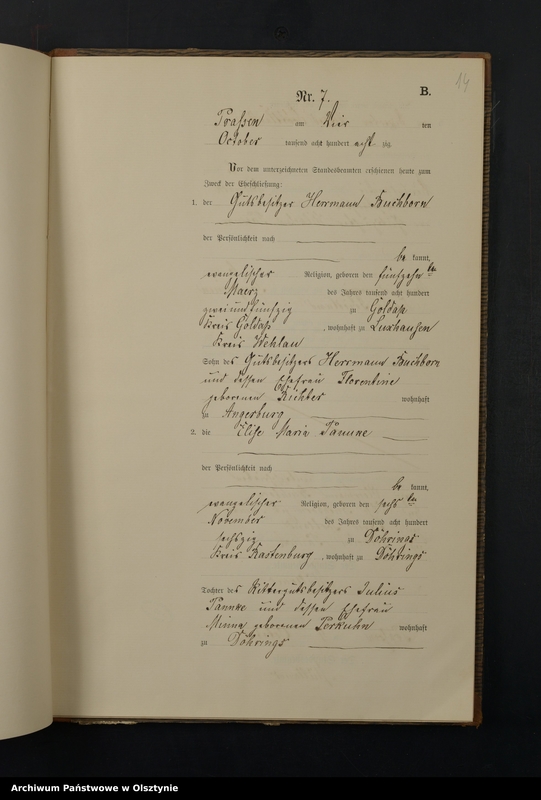 14
Nr. 7.
B.
Praßen am Vier ten
October tausend acht hundert acht zig.
Vor dem unterzeichneten Standesbeamten erschienen heute zum
Zweck der Eheschließung:
1. der Gutsbesitzer Herrmann Buchborn
der Persönlichkeit nach
be kannt,
evangelischer Religion, geboren den fünfzehnten
Maerz des Jahres tausend acht hundert
zwei und fünfzig zu Goldap
Kreis Goldap, wohnhaft zu Luxhausen
Kreis Wehlau
Sohn des Gutsbesitzers Herrmann Buchborn
und dessen Ehefrau Florentine
geborenen Richter wohnhaft
zu Angerburg
2. die Elise Maria
der Persönlichkeit nach
be kannt,
evangelischer Religion, geboren den sechsten
November des Jahres tausend acht hundert
sechszig zu Döhrings
Kreis Rastenburg, wohnhaft zu Döhrings
Tochter des Rittergutsbesitzers Julius
und dessen Ehefrau
Minna geborenen Perkuhn wohnhaft
zu Döhrings
Archiwum Państwowe w Olsztynie